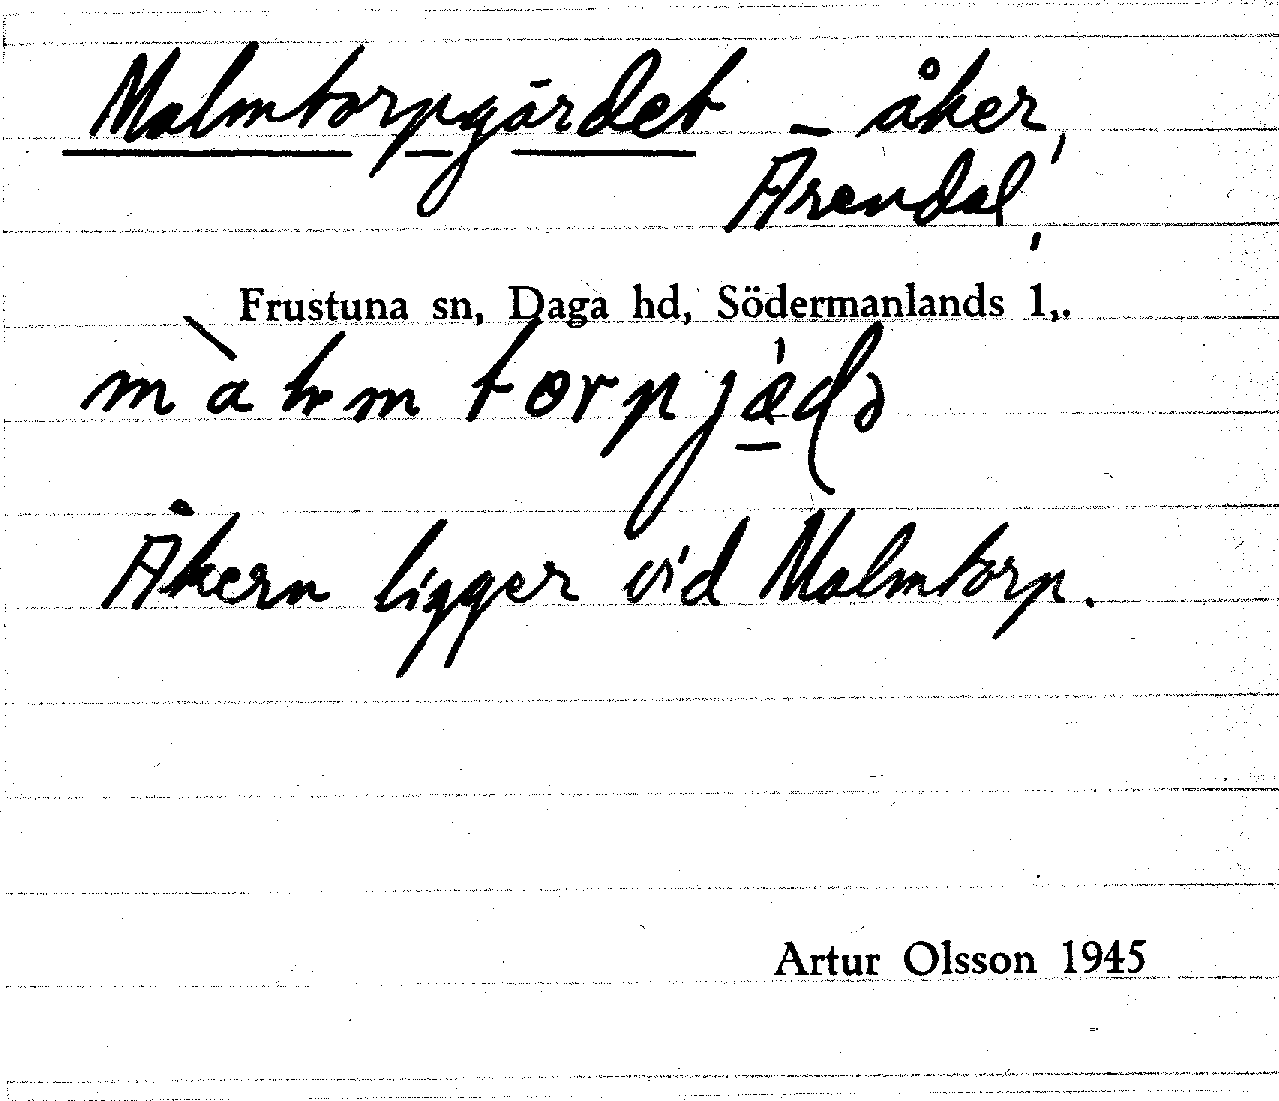 Malmtorpgärdet – åker,
Arendal,
Frustuna sn, Daga hd, Södermanlands l.
Åkern ligger vid Malmtorp.
Artur Olsson 1945